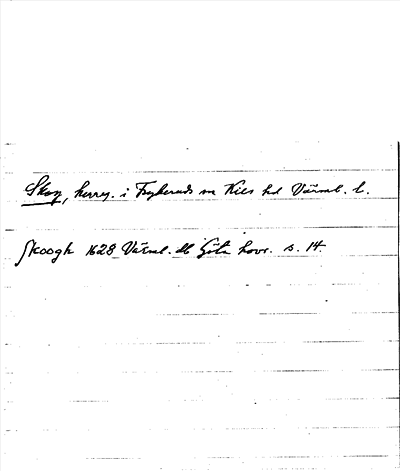 Skog, herrg. i Frykeruds sn Kils hd Värml. l.
Skoogh 1628 Värml. db Göta hovr. s. 14.